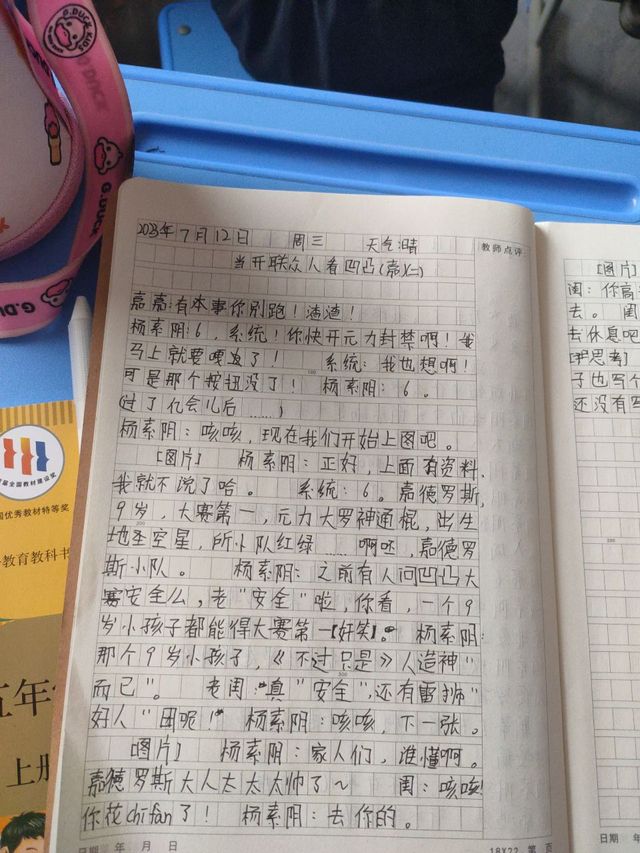 G.DUCK KIDS
G.DUCK
G.DUCK
教师点评
2023年7月12日 周三 天气:晴
当开联众人看凹凸(嘉)(二)
嘉嘉:有本事你别跑!渣渣!
杨素阴:6,系统!你快开元力封禁啊!我
马上就要嘎发了! 系统:我也想啊!
可是那个按钮没了! 杨素阴:6。
(过了亿会儿后……)
杨素阴:咳咳,现在我们开始上图吧。
[图片] 杨素阴:正好,上面有资料,
我就不说了哈。 系统:6。嘉德罗斯,
9岁,大赛第一,元力大罗神通棍,出生
地圣空星,所小队红绿……啊呸,嘉德罗
斯小队。 杨素阴:之前有人问凹凸大
赛安全么,老"安全"啦,你看,一个9
岁小孩子都能得大赛第一【好笑】。 杨素阴:
那个9岁小孩子,《不过只是》人造神"
而已"。 老闺:"真"安全",还有雷狮"
好人"团呢!" 杨素阴:咳咳,下一张。
[图片] 杨素阴:家人们,谁懂啊。
嘉德罗斯大人太太太帅了~ 闺:咳咳!
你花chi fan了! 杨素阴:去你的。
100
200
300
日期 年 月 日
18X22 第 页
[图片]
闺:你高
去。 闺
去休息吧
子也写个
还没有写
200
日期 年
国优秀教材特等奖
教育教科书
五年
上册